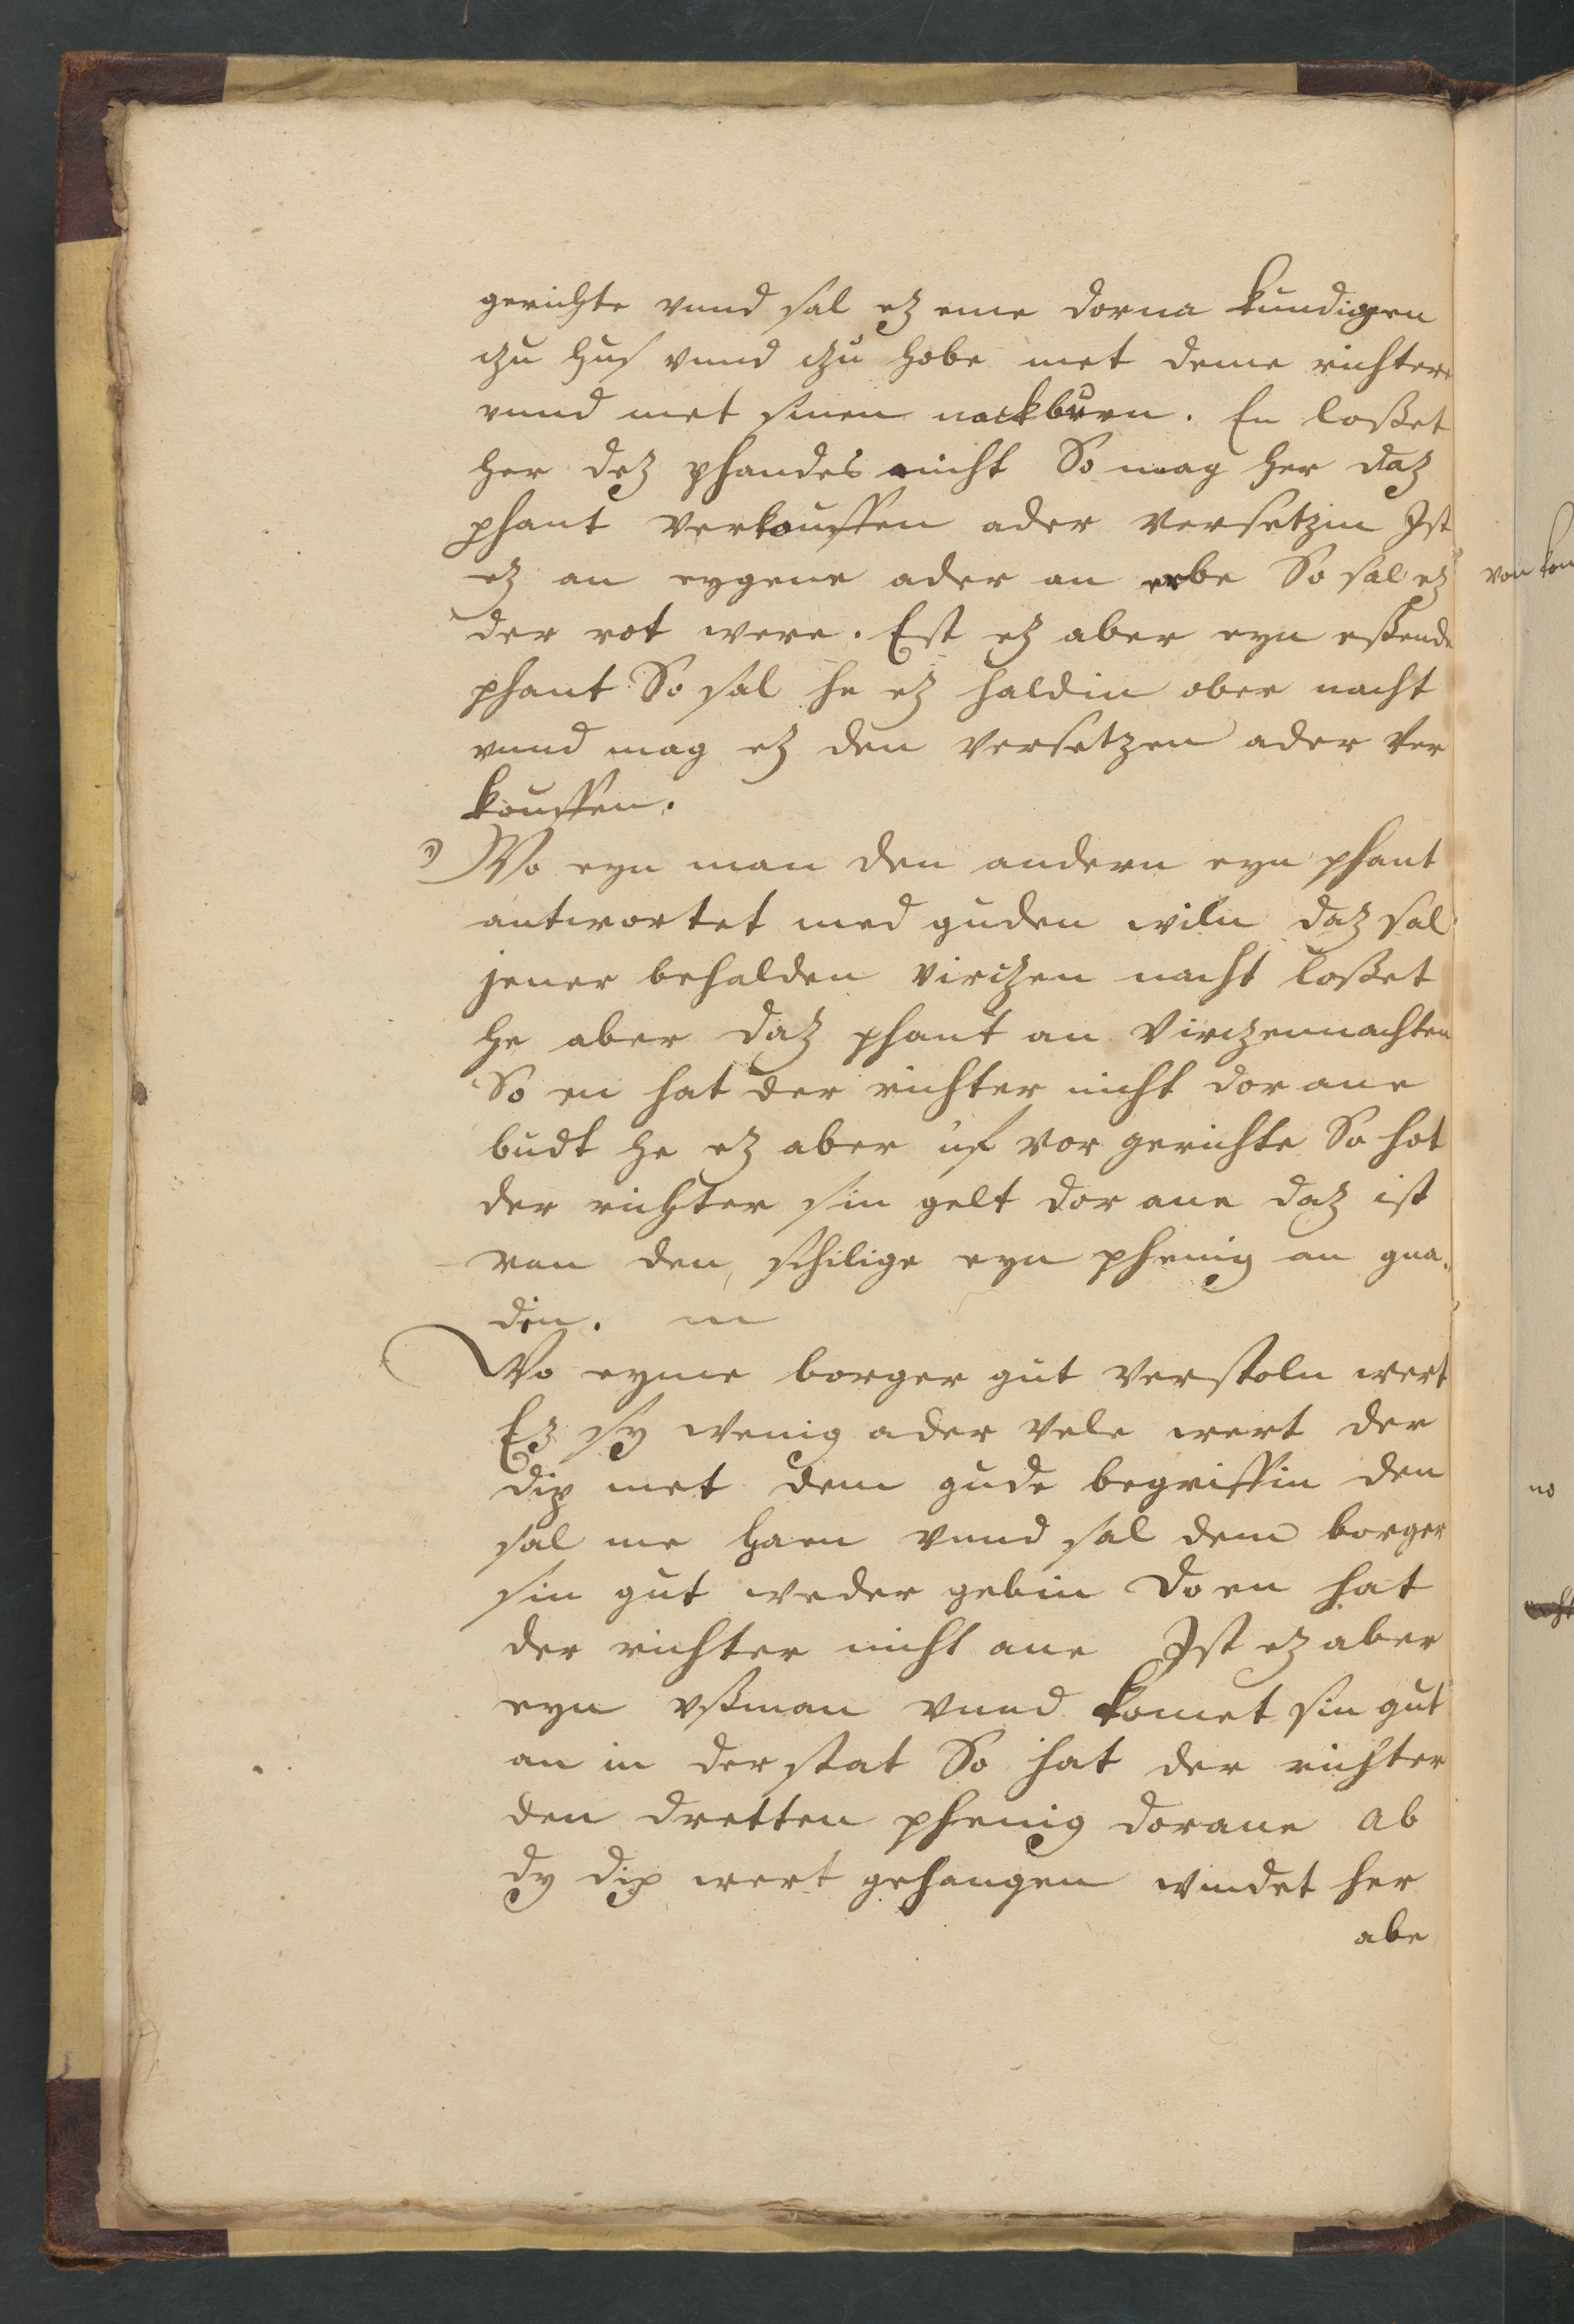 gerichte vnnd sal ez eme dorna kundigen
czu hus vnnd czu hobe met deme richtere
vnnd met sinen nackburn. En loßet
her dez phandes nicht So mag her daz
phant verkouffen ader versetzin Ist
ez an eygene ader an erbe So sal ez
der rot were. Est ez aber eyn eßende
phant So sal he ez haldin ober nacht
vnnd mag ez den versetzen ader ver
kouffen.
Wo eyn man den andern eyn phant
antwortet med guden wiln daz sal
jener behalden virczen nacht loßet
he aber daz phant an virczennachten
So en hat der richter nicht dor ane
budt he ez aber uf vor gerichte So hot
der richter sin gelt dor ane daz ist
van den schilige eyn phenig an gna
din.
Wo eyme borger gut verstoln wert
Ez sy wenig ader vele wert der
dip met dem gude begriffin den
sal me haen vnnd sal dem borger
sin gut weder gebin do en hat
der richter nicht ane Ist ez aber
eyn vßman vnnd komet sin gut
an in der stat So hat der richter
den dretten phenig dorane ab
dy dip wert gehangen windet her
abe
von
no